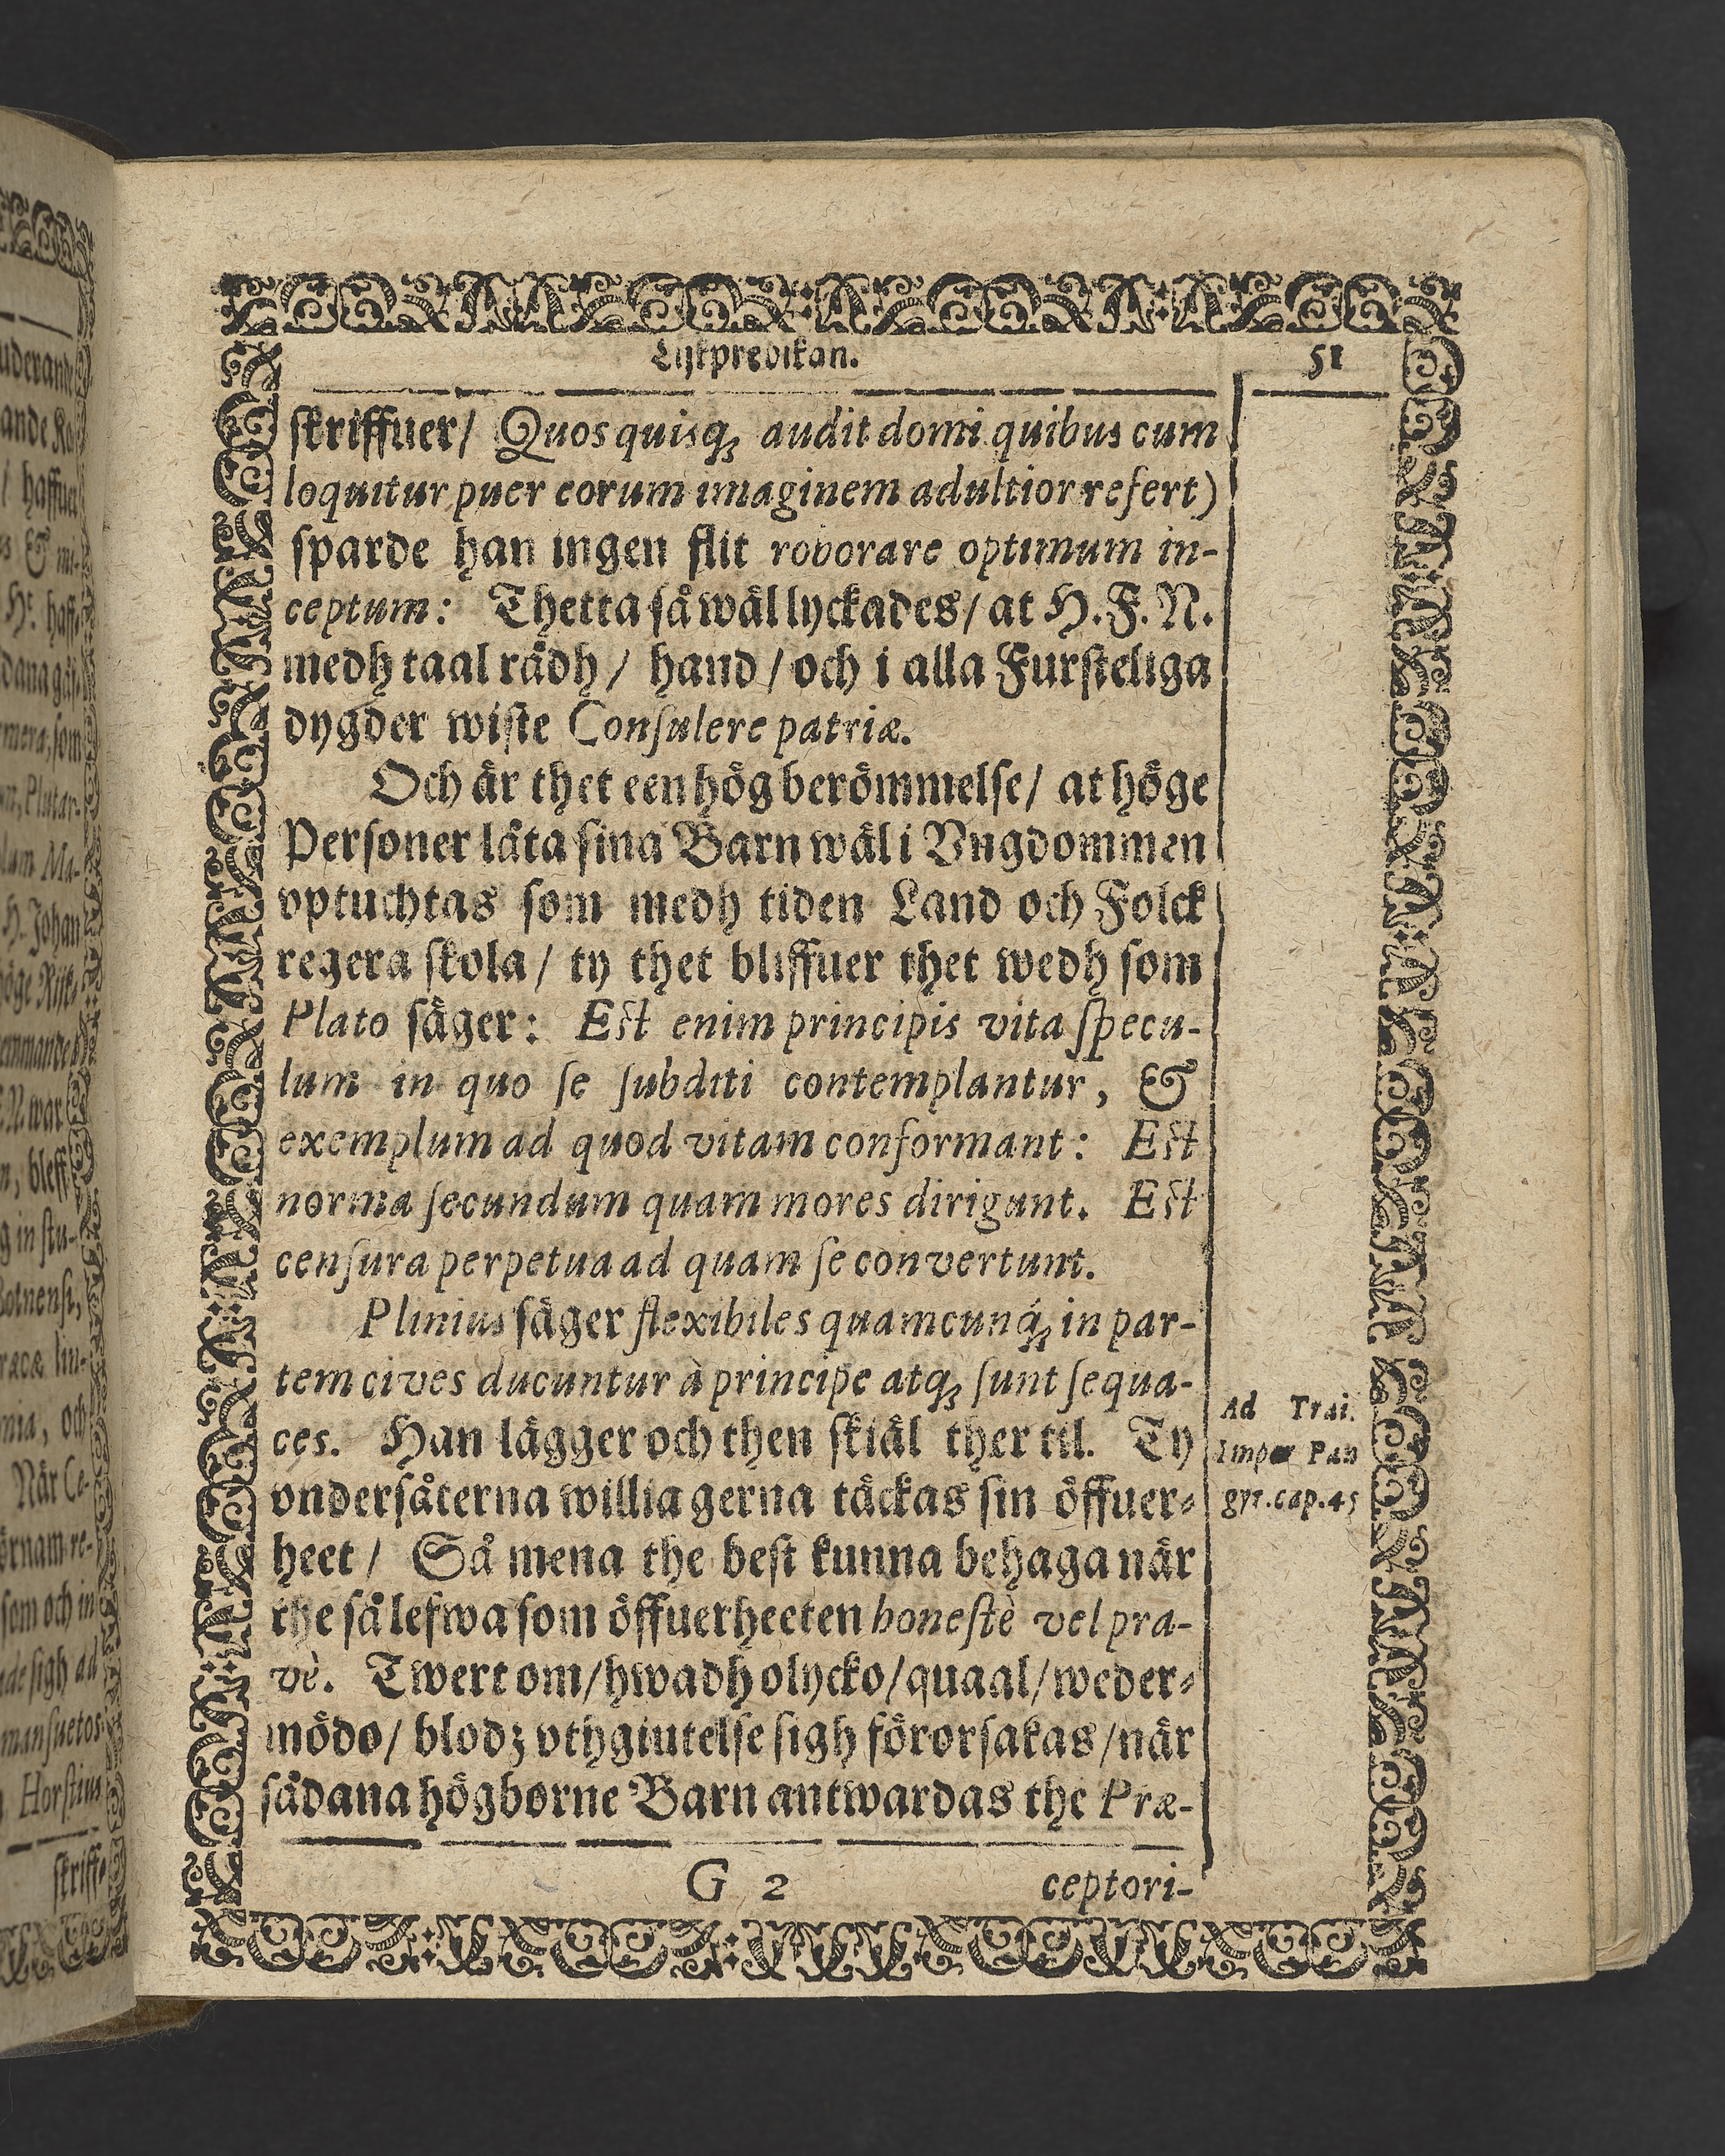 Lijkpredikan. 51
skriffuer/ Quos quisq; audit domi quibus cum
loquitur puer eorum imaginem adultior refert)
sparde han ingen flit roborare optimum in-
ceptum: Thetta så wäl lyckades/ at H.F.N.
medh taal rådh/ hand/ och i alla Fursteliga
dygder wiste Conſulere patriæ.
Och är thet een hög berömmelse/ at höge
Personer låta sina Barn wäl i Vngdommen
vptuchtas som medh tiden Land och Folck
regera skola/ ty thet bliffuer thet wedh som
Plato säger: Est enim principis vita ſpecu-
lum in quo ſe ſubditi contemplantur, &
exemplum ad quod vitam conformant: Est
norma ſecundum quam mores dirigunt. Est
cenſura perpetua ad quam ſe convertunt.
Plinius säger flexibiles quamcunq́; in par-
tem cives ducuntur à principe atq; ſunt ſequa-
ces. Han lägger och then skiäl ther til. Ty
vndersåterna willia gerna täckas sin öffuer-
heet/ Så mena the best kunna behaga när
the så lefwa som öffuerheeten honeſtè vel pra-
vè. Twert om/ hwadh olycko/ quaal/ weder-
mödo/ blodz vthgiutelse sigh förorsakas/ när
sådana högborne Barn antwardas the Præ-
G 2 ceptori-
Ad Trai.
Imper Pan
gyr. cap. 45